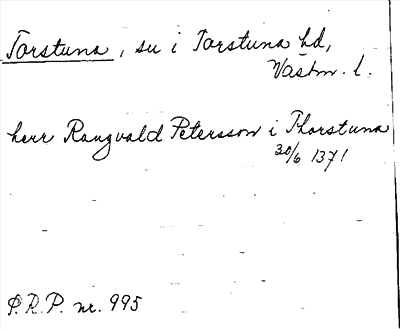 Torstuna, su i Torstuna hd,
Västm. l.
herr Rangvald Petersson i Thorstuna
30/6 1371
P.R.P. nr. 995